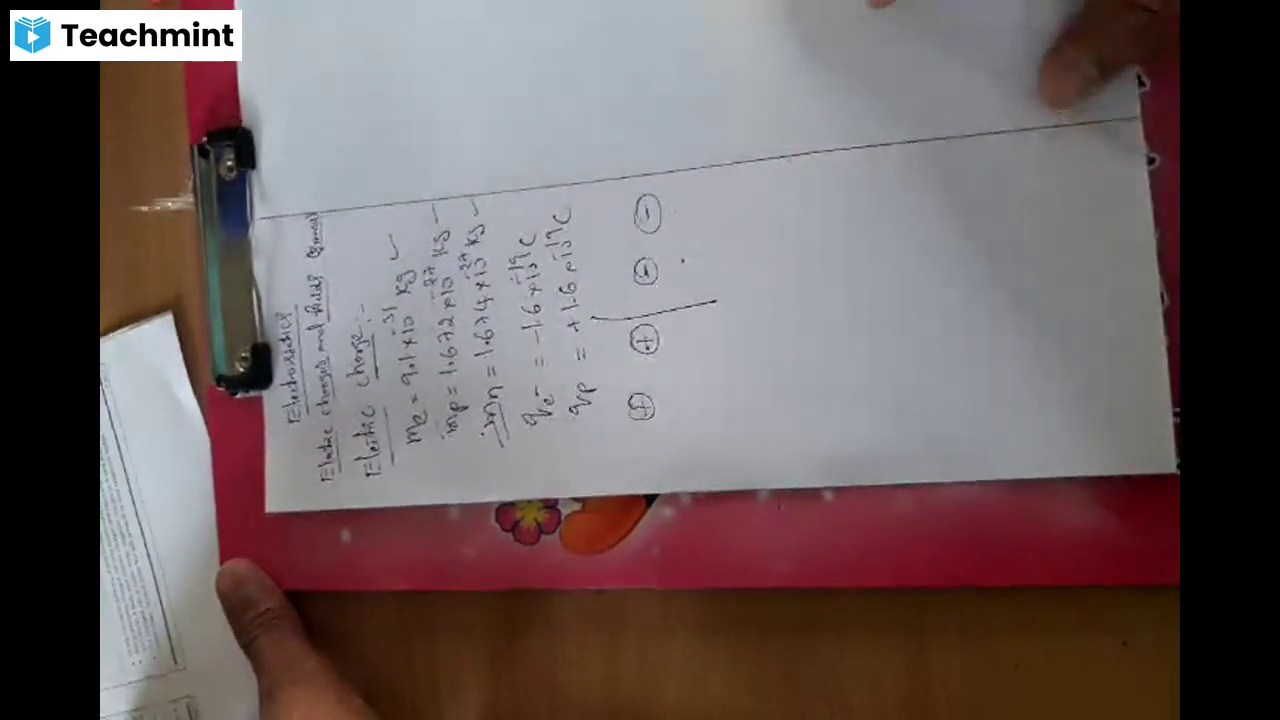 Teachmint
Electrostatics
Electric charges and fields
Electric charge:-
me = 9.1 × 10⁻³¹ kg ✓
mp = 1.672 × 10⁻²⁷ kg
mn = 1.674 × 10⁻²⁷ kg
qe- = -1.6 × 10⁻¹⁹ C
qp = +1.6 × 10⁻¹⁹ C
⊕ ⊕ ⊖ ⊖